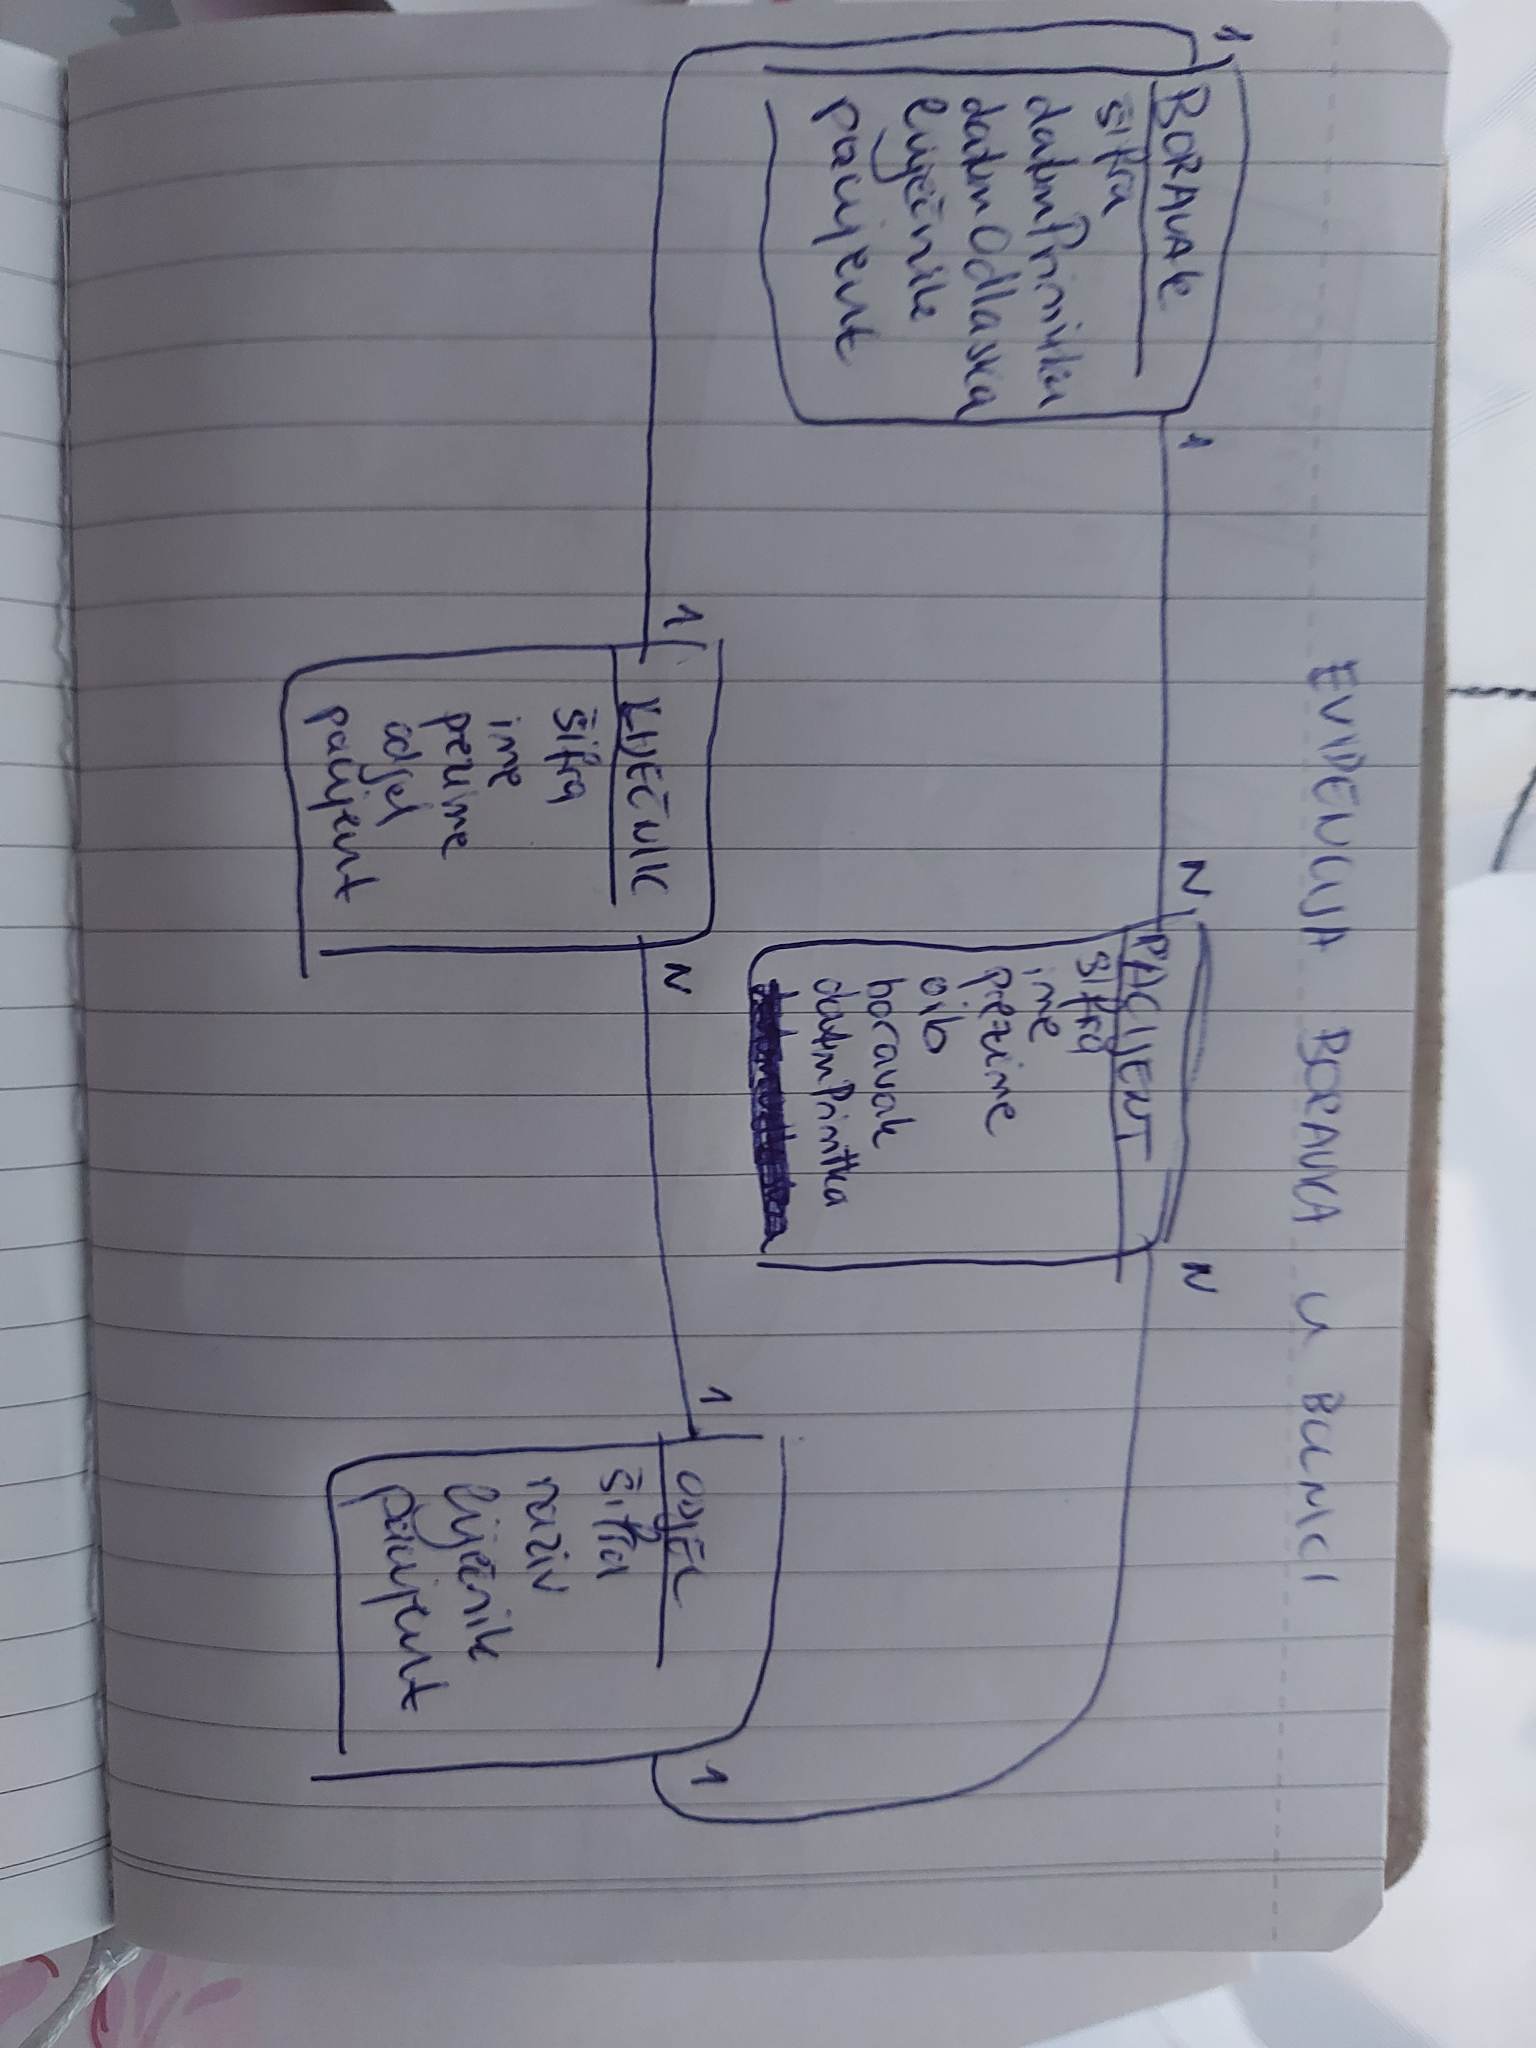 EVIDENCIJA BORAVKA U BOLNICI
1
BORAVAK
šifra
datumPrimitka
datumOdlaska
liječnik
pacijent
1
N
PACIJENT
šifra
ime
prezime
oib
boravak
datumPrimitka
N
1
LIJEČNIK
šifra
ime
prezime
odjel
pacijent
N
1
ODJEL
šifra
naziv
liječnik
pacijent
1